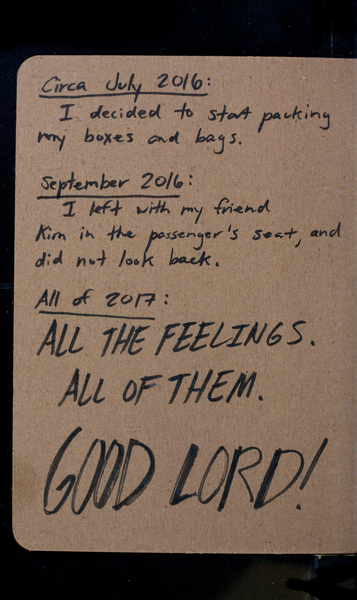 Circa July 2016:
I decided to start packing
my boxes and bags.
September 2016:
I left with my friend
Kim in the passenger's seat, and
did not look back.
All of 2017:
ALL THE FEELINGS.
ALL OF THEM.
GOOD LORD!